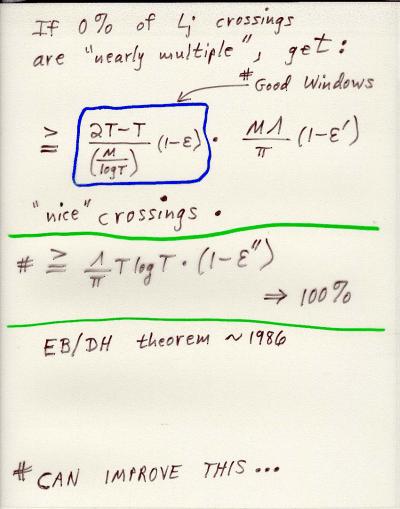 If 0% of Lj crossings
are "nearly multiple", get:
# Good Windows
≥ (2T-T)/(M/logT) (1-ε) · MΛ/π (1-ε')
"nice" crossings.
# ≥ Λ/π T log T · (1-ε'')
⇒ 100%
EB/DH theorem ~1986
# CAN IMPROVE THIS...